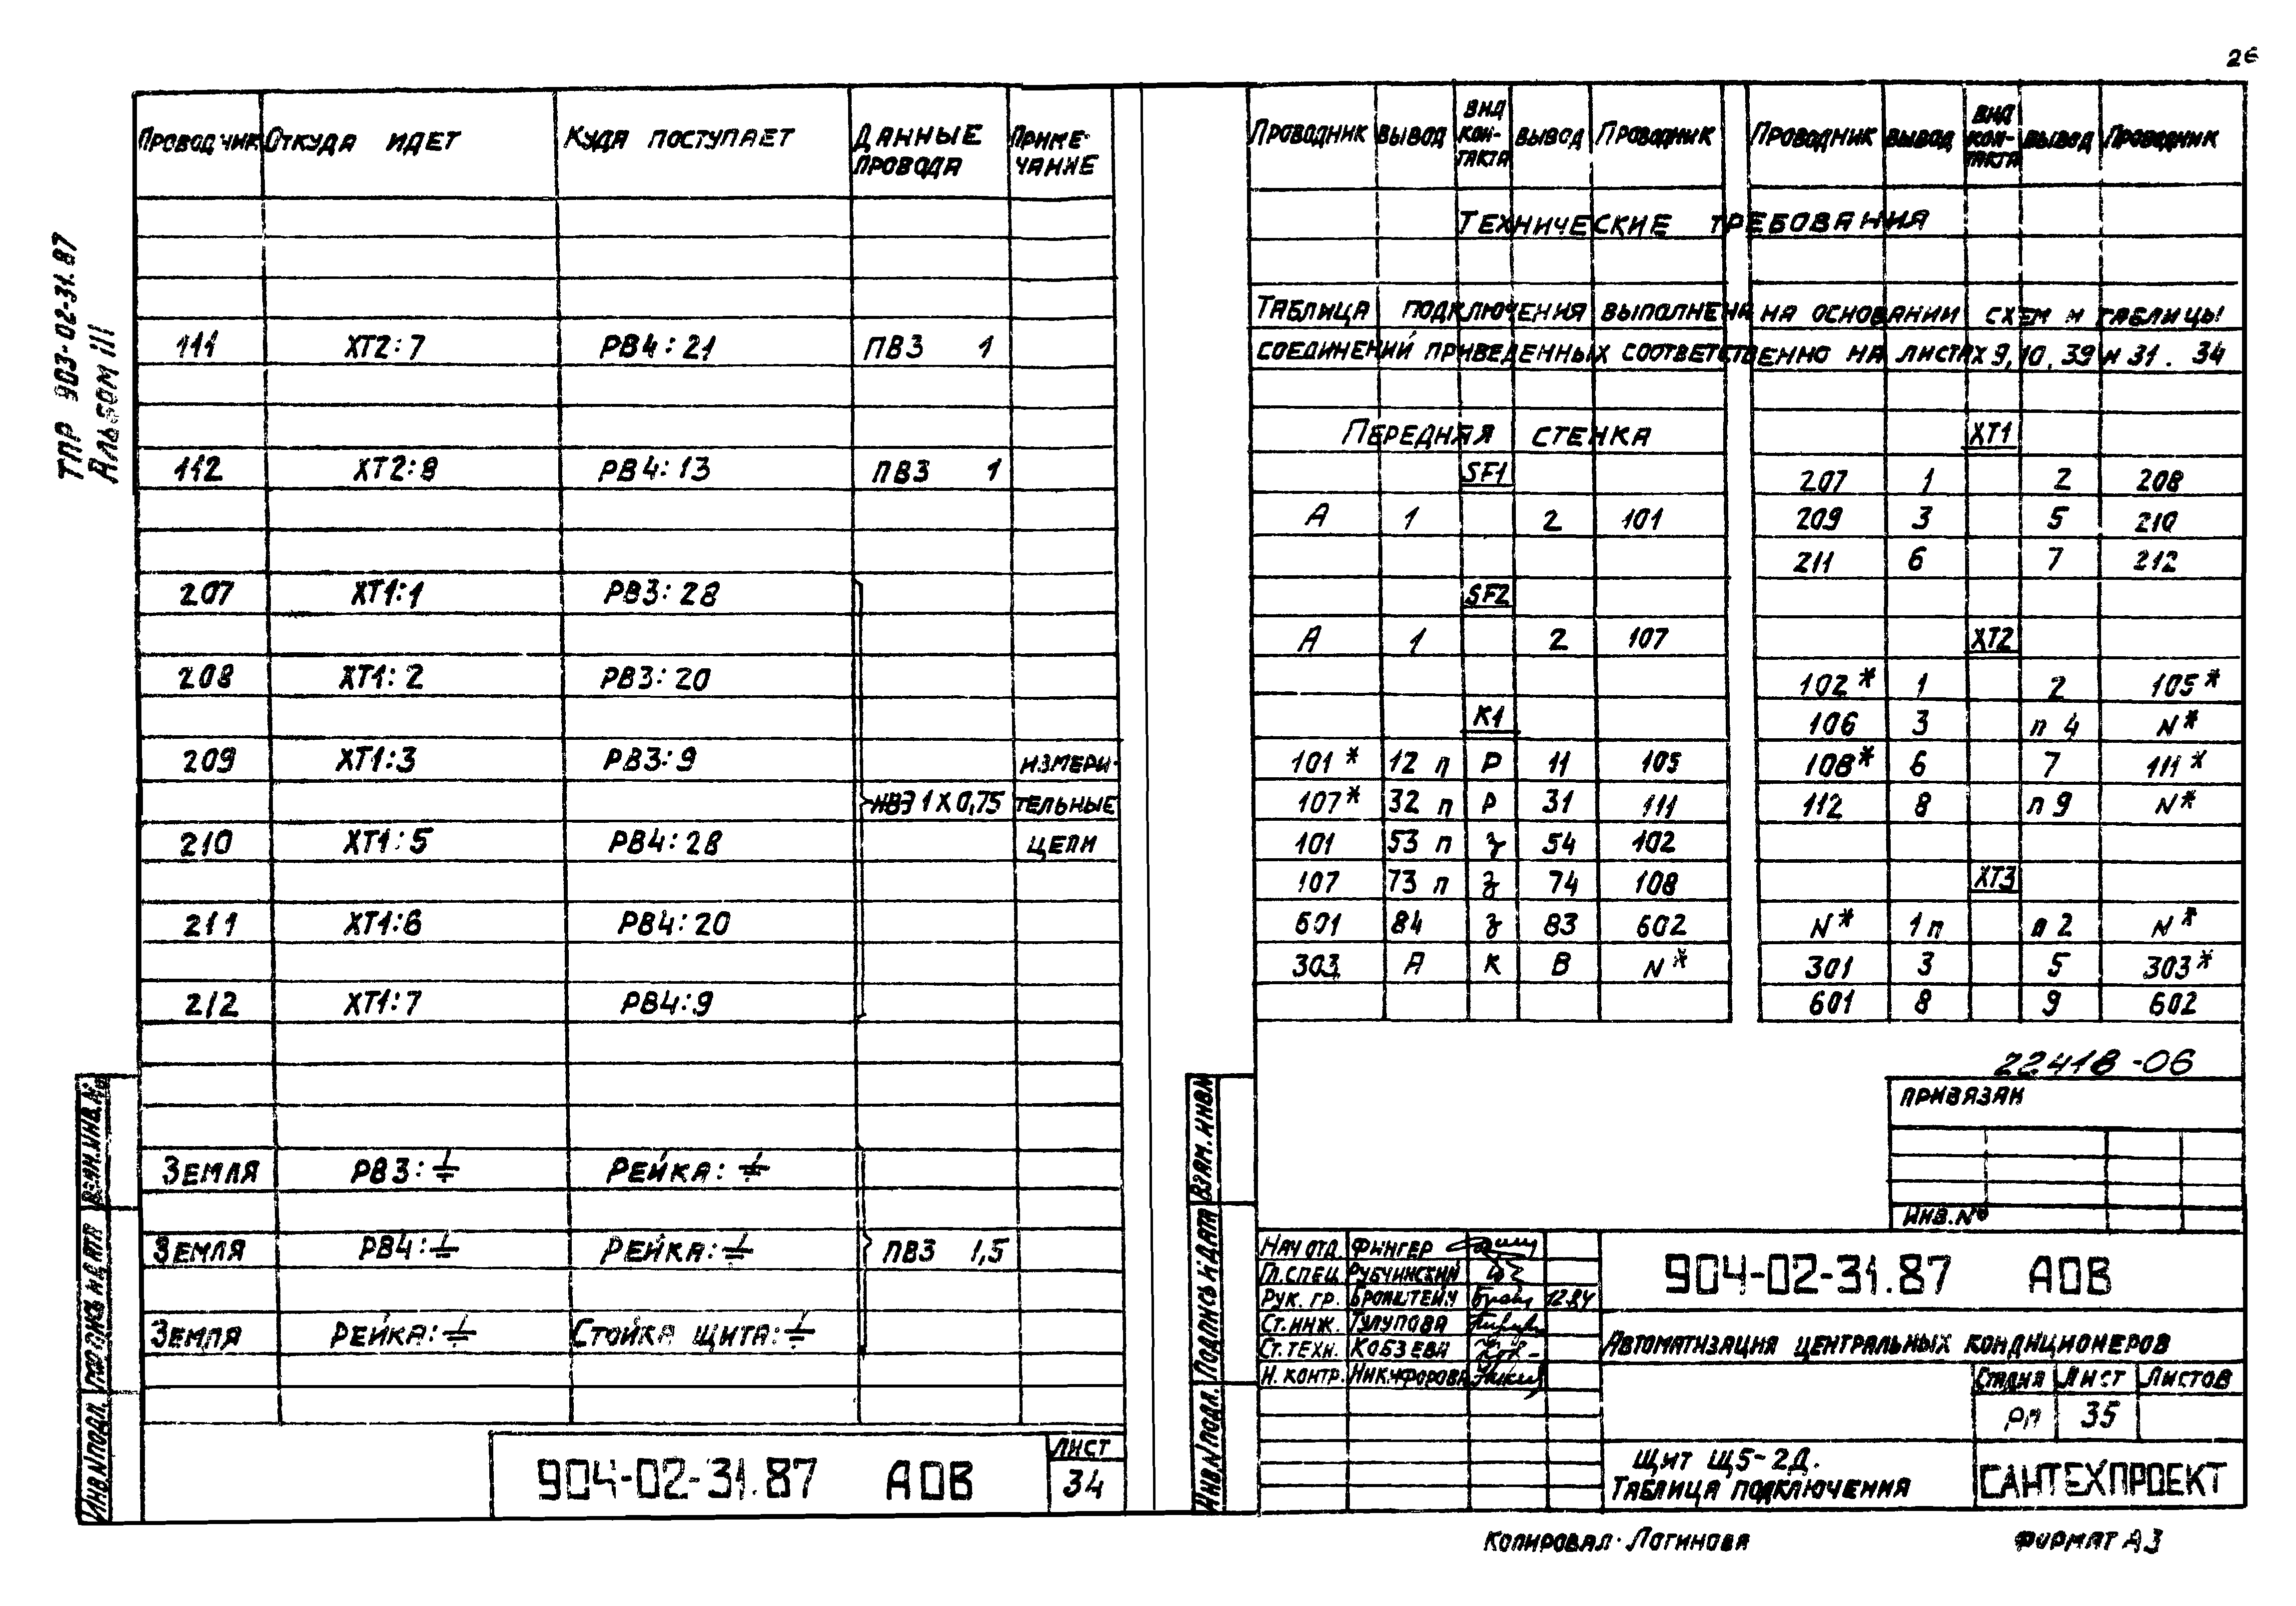 26
ТПР 903-02-31.87
Альбом III
Проводник Откуда идет Куда поступает Данные провода Примечание
111 ХТ2:7 РВ4:21 ПВ3 1
112 ХТ2:8 РВ4:13 ПВ3 1
207 ХТ1:1 РВ3:28
208 ХТ1:2 РВ3:20
209 ХТ1:3 РВ3:9 измери-
НВЭ 1х0,75 тельные
210 ХТ1:5 РВ4:28 цепи
211 ХТ1:6 РВ4:20
212 ХТ1:7 РВ4:9
Земля РВ3:⏚ Рейка:⏚
Земля РВ4:⏚ Рейка:⏚ ПВ3 1,5
Земля Рейка:⏚ Стойка щита:⏚
904-02-31.87 АОВ
Лист
34
Взам.инв.№
Подпись и дата
Инв.№подл.
Проводник Вывод Вид кон-такта Вывод Проводник Проводник Вывод Вид кон-такта Вывод Проводник
Технические требования
Таблица подключения выполнена на основании схем и таблицы
соединений приведенных соответственно на листах 9, 10, 39 и 31. 34
Передняя стенка
SF1
А 1 2 101
SF2
А 1 2 107
К1
101* 12 п Р 11 105
107* 32 п Р 31 111
101 53 п з 54 102
107 73 п з 74 108
601 84 з 83 602
303 А К В N*
ХТ1
207 1 2 208
209 3 5 210
211 6 7 212
ХТ2
102* 1 2 105*
106 3 п 4 N*
108* 6 7 111*
112 8 п 9 N*
ХТ3
N* 1 п п 2 N*
301 3 5 303*
601 8 9 602
22418-06
Привязан
Инв.№
Взам.инв.№
Подпись и дата
Инв.№подл.
Нач отд Фингер
Гл.спец Рубчинский
Рук. гр. Бронштейн 12.84
Ст.инж. Тулупова
Ст.техн. Кобзева
Н. контр. Никифорова
904-02-31.87 АОВ
Автоматизация центральных кондиционеров
Стадия Лист Листов
РП 35
Щит Щ5-2Д.
Таблица подключения
САНТЕХПРОЕКТ
Копировал Логинова
Формат А3